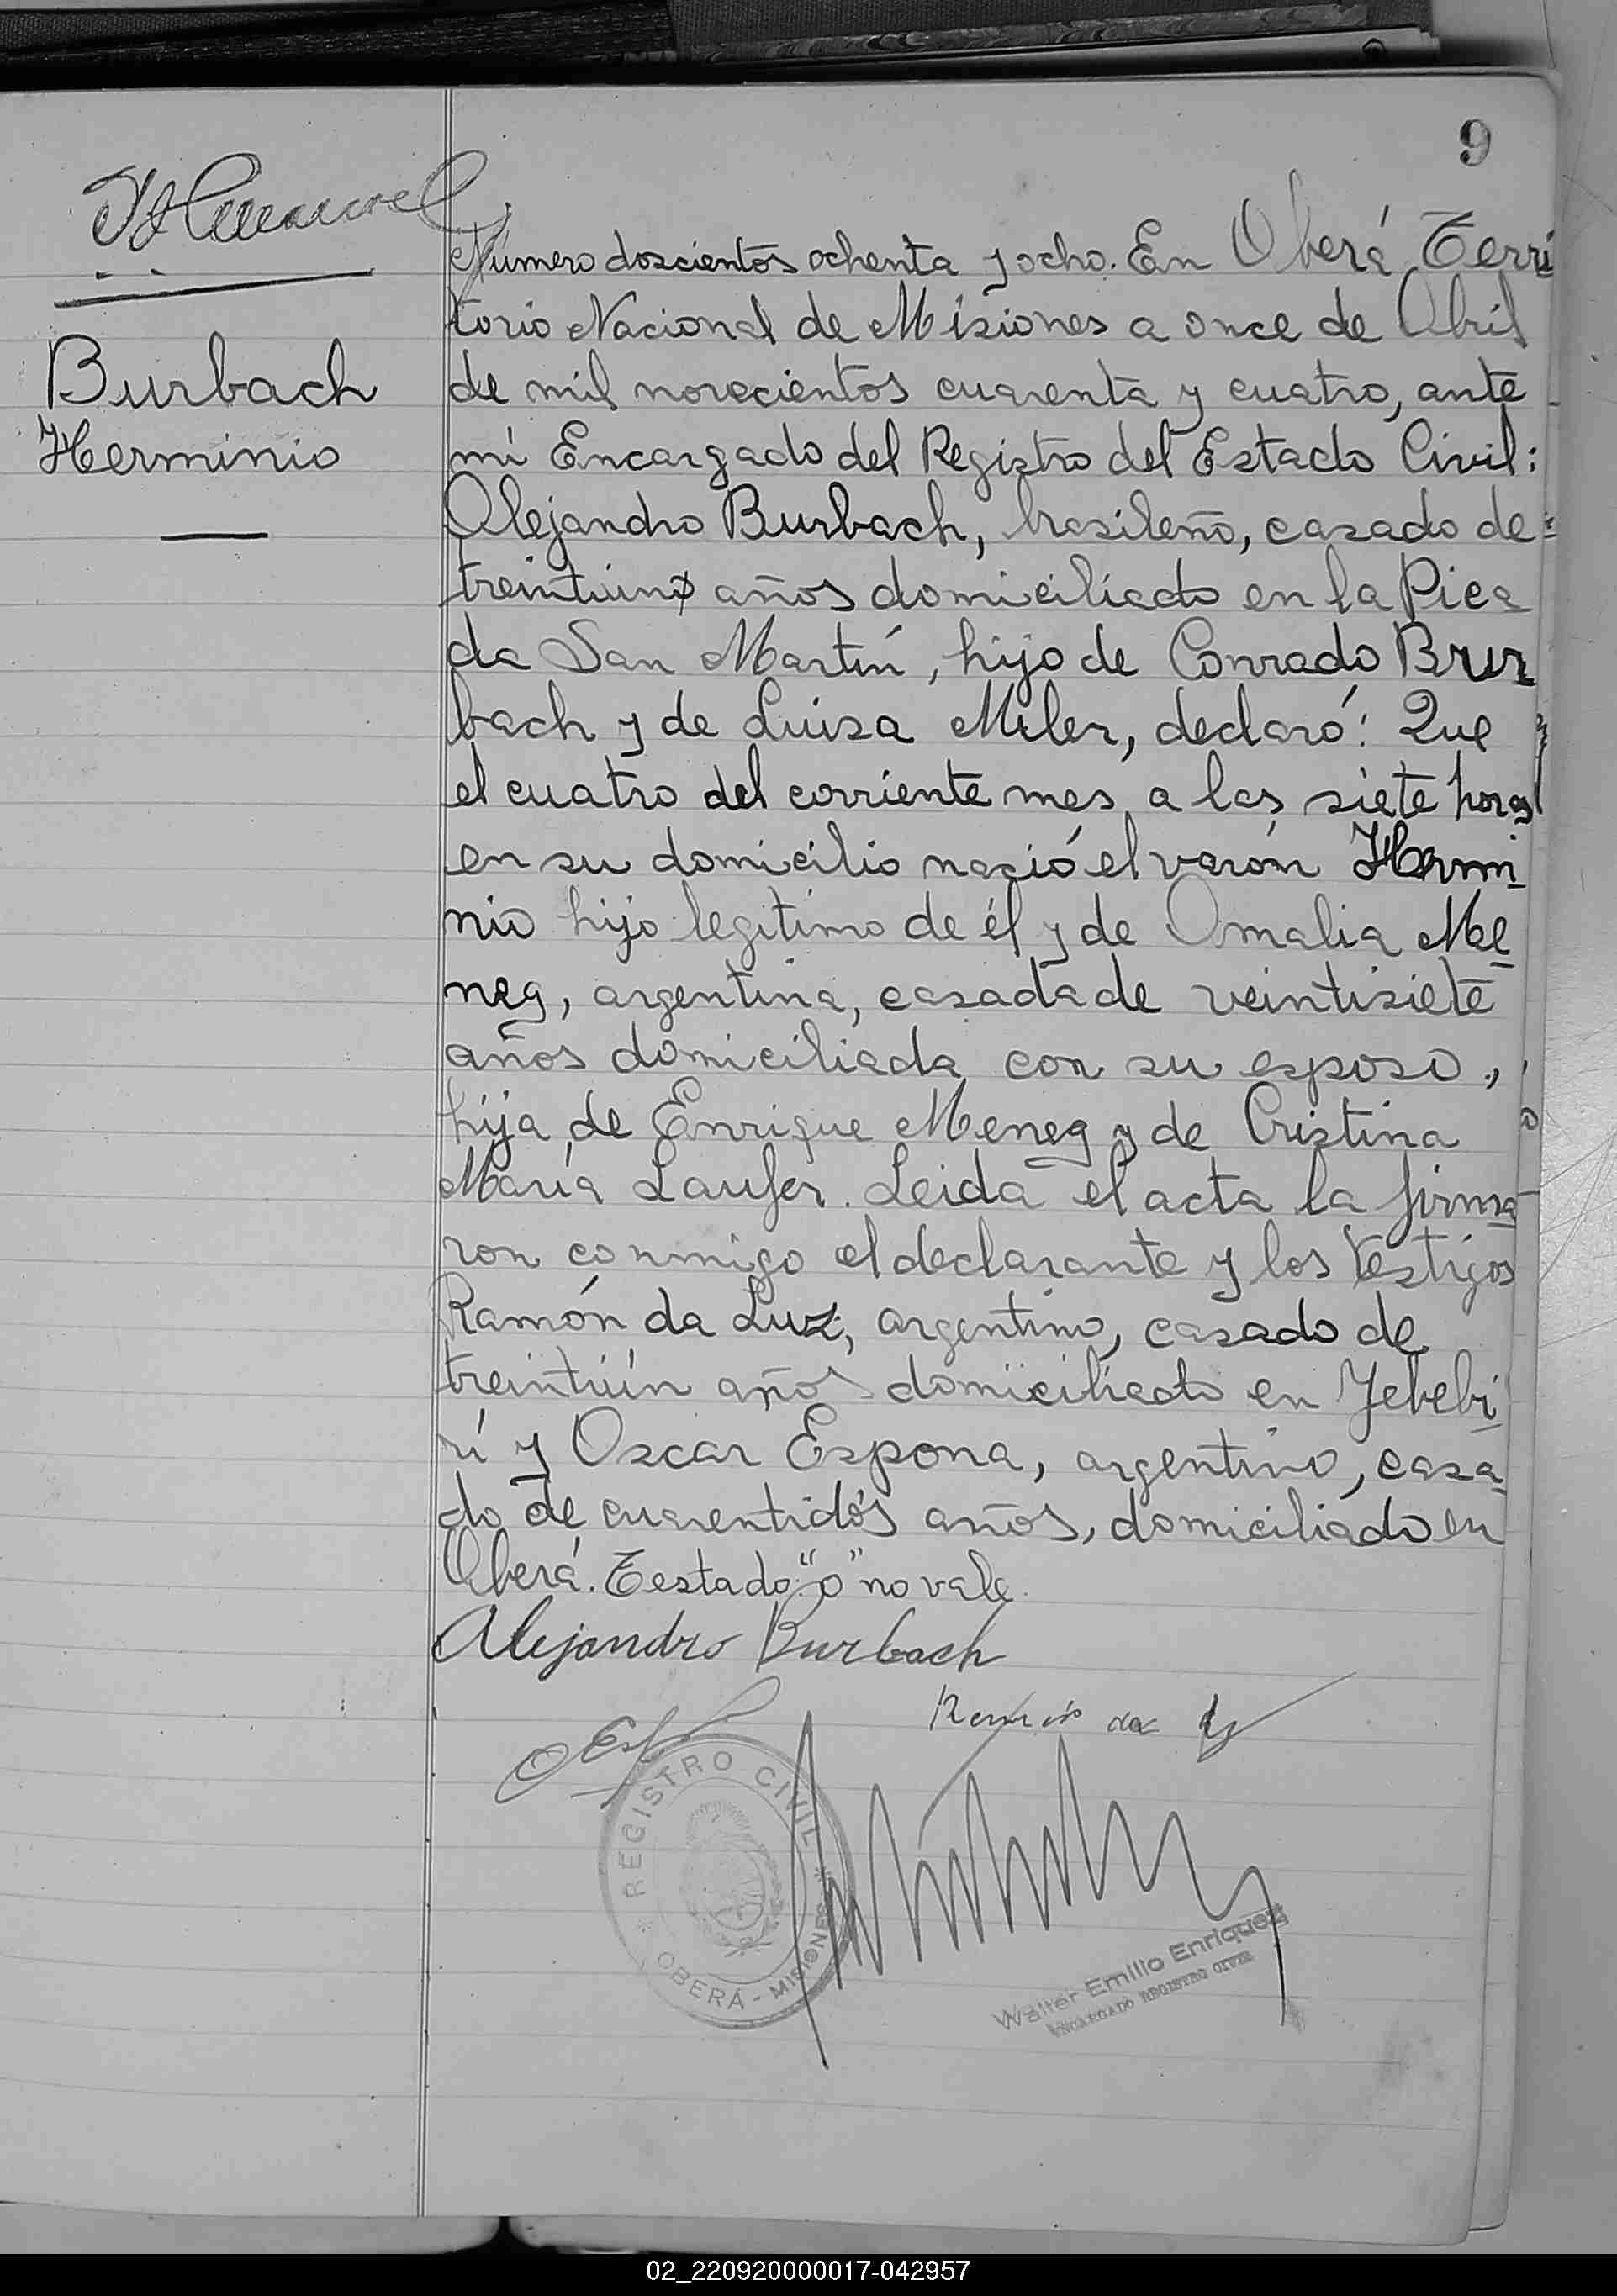 9
Burbach
Herminio
Número doscientos ochenta y ocho. En Oberá Terri
torio Nacional de Misiones a once de Abril
de mil novecientos cuarenta y cuatro, ante
mi Encargado del Registro del Estado Civil:
Alejandro Burbach, brasileño, casado de
treintiuno años domiciliado en la Pica
da San Martín, hijo de Conrado Bur
bach y de Luisa Miler, declaró: Que
el cuatro del corriente mes a las siete horas
en su domicilio nació el varón Hermi
nio hijo legítimo de él y de Omalia Me
neg, argentina, casada de veintisiete
años domiciliada con su esposo,
hija de Enrique Meneg y de Cristina
María Laufer. Leida el acta la firma
ron conmigo el declarante y los testigos
Ramón da Luz, argentino, casado de
treintiún años domiciliado en Yebebi
rí y Oscar Espona, argentino, casa
do de cuarentidós años, domiciliado en
Oberá. Testado "o" no vale.
Alejandro Burbach
REGISTRO CIVIL
OBERÁ - MISIONES
Walter Emilio Enriquez
ENCARGADO REGISTRO CIVIL
02_220920000017-042957